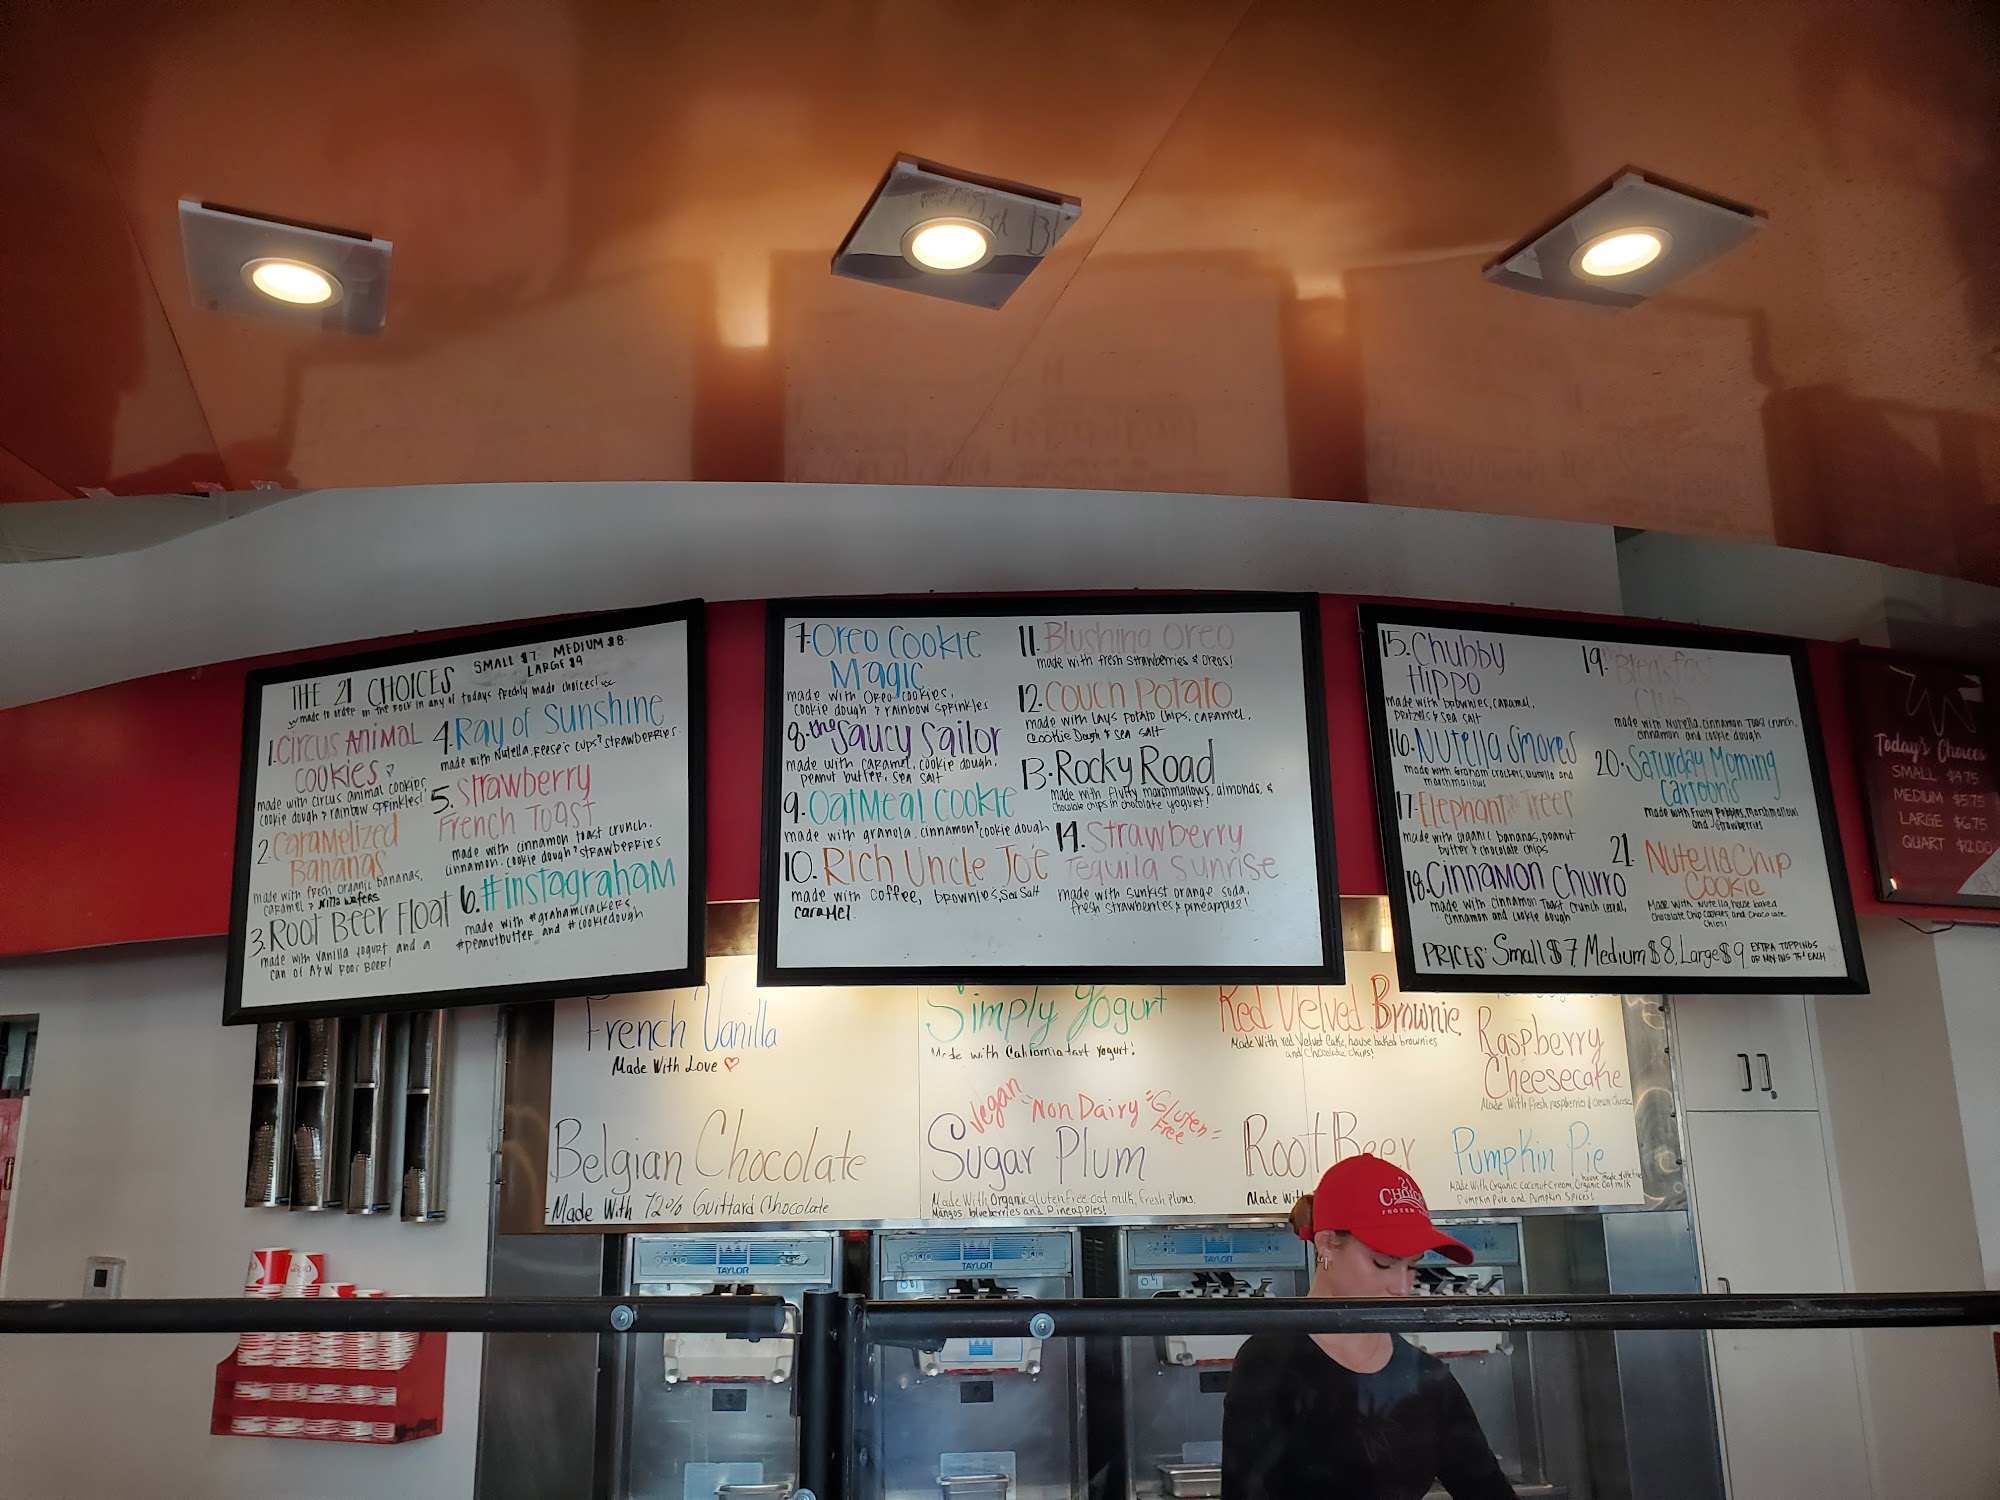 THE 21 CHOICES SMALL $7 MEDIUM $8
LARGE $9
made to order on the rock in any of todays freshly made choices!
1. Circus Animal
Cookies
made with circus animal cookies,
cookie dough & rainbow sprinkles!
2. Caramelized
Bananas
made with fresh organic bananas,
caramel & nilla wafers
3. Root Beer Float
made with vanilla yogurt and a
can of A&W Root Beer!
4. Ray of Sunshine
made with Nutella, Reese's cups & strawberries
5. Strawberry
French Toast
made with cinnamon toast crunch,
cinnamon, cookie dough & strawberries
6. #instagraham
made with #grahamcrackers
#peanutbutter and #cookiedough
7. Oreo Cookie
Magic
made with Oreo cookies,
cookie dough & rainbow sprinkles
8. the Saucy Sailor
made with caramel, cookie dough,
peanut butter, sea salt
9. Oatmeal Cookie
made with granola, cinnamon & cookie dough
10. Rich Uncle Joe
made with coffee, brownies, sea salt
caramel
11. Blushing Oreo
made with fresh strawberries & oreos!
12. Couch Potato
made with Lays Potato Chips, caramel,
Cookie Dough & sea salt
13. Rocky Road
made with fluffy marshmallows, almonds, &
chocolate chips in chocolate yogurt!
14. Strawberry
Tequila Sunrise
made with Sunkist orange soda,
fresh strawberries & pineapples!
15. Chubby
Hippo
made with brownies, caramel,
pretzels & sea salt
16. Nutella Smores
made with graham crackers, nutella and
marshmallows
17. Elephants Trees
made with organic bananas, peanut
butter & chocolate chips
18. Cinnamon Churro
made with cinnamon toast crunch cereal,
cinnamon and cookie dough
19. Breakfast
Club
made with Nutella, cinnamon toast crunch,
cinnamon and cookie dough
20. Saturday Morning
Cartoons
made with fruity pebbles, marshmallows
and strawberries
21. Nutella Chip
Cookie
Made with Nutella, house baked
chocolate chip cookies, and chocolate
chips!
PRICES: Small $7, Medium $8, Large $9 EXTRA TOPPINGS
OR MIX INS 75¢ EACH
Today's Choices
SMALL $4.75
MEDIUM $5.75
LARGE $6.75
QUART $12.00
French Vanilla
Made With Love
Simply Yogurt
Made with California tart yogurt!
Red Velved Brownie
Made With red Velvet Cake, house baked brownies
and chocolate chips!
Raspberry
Cheesecake
Made With fresh raspberries & cream cheese
Belgian Chocolate
Made With 72% Guittard Chocolate
Vegan "Non Dairy" Gluten
Free
Sugar Plum
Made With Organic gluten free oat milk, fresh plums,
Mangos, blueberries and Pineapples!
Root Beer
Made With
Pumpkin Pie
Made With Organic coconut cream, Organic Oatmilk
Pumpkin Puree and Pumpkin Spices!
TAYLOR
TAYLOR
TAYLOR
21
CHOICES
FROZEN